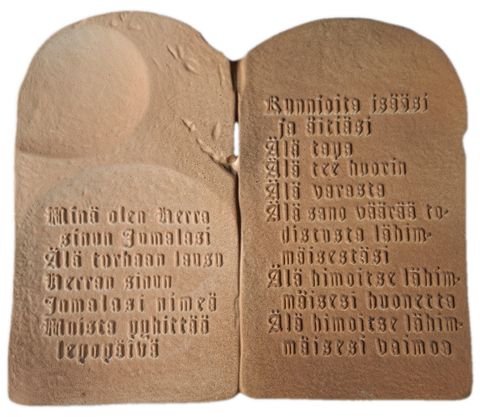 Minä olen Herra
sinun Jumalasi
Älä turhaan lausu
Herran sinun
Jumalasi nimeä
Muista pyhittää
lepopäivä
Kunnioita isääsi
ja äitiäsi
Älä tapa
Älä tee huorin
Älä varasta
Älä sano väärää to-
distusta lähim-
mäisestäsi
Älä himoitse lähim-
mäisesi huonetta
Älä himoitse lähim-
mäisesi vaimoa